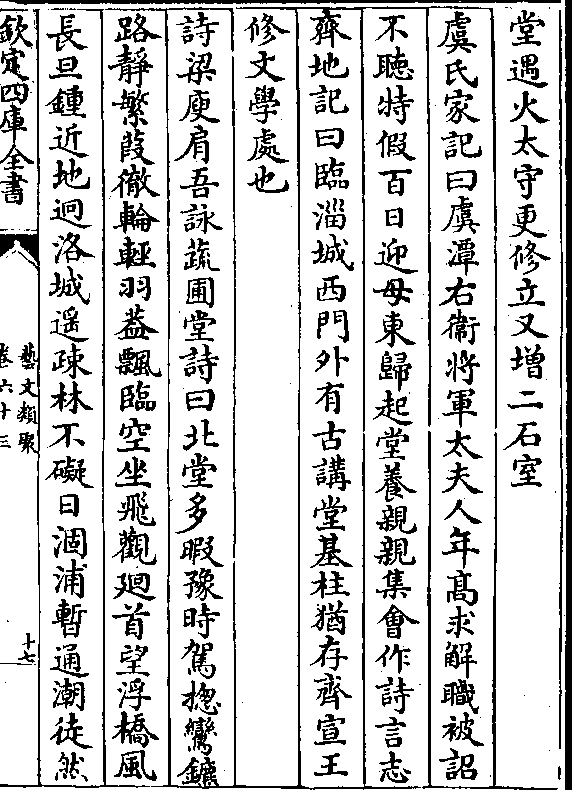 堂遇火太守更修立又增二石室
虞氏家記曰虞潭右衞將軍太夫人年髙求解職被詔
不聽特假百日迎母東歸起堂養親親集會作詩言志
齊地記曰臨淄城西門外有古講堂基柱猶存齊宣王
修文學處也
詩梁庾肩吾詠蔬圃堂詩曰北堂多暇豫時駕揔鸞鑣
路靜繁葭徹輪輕羽葢飄臨空坐飛觀廻首望浮橋風
長旦鍾近地迥洛城遥疎林不礙日涸浦暫通潮徒然
欽定四庫全書
藝文類聚
卷六十三
十七